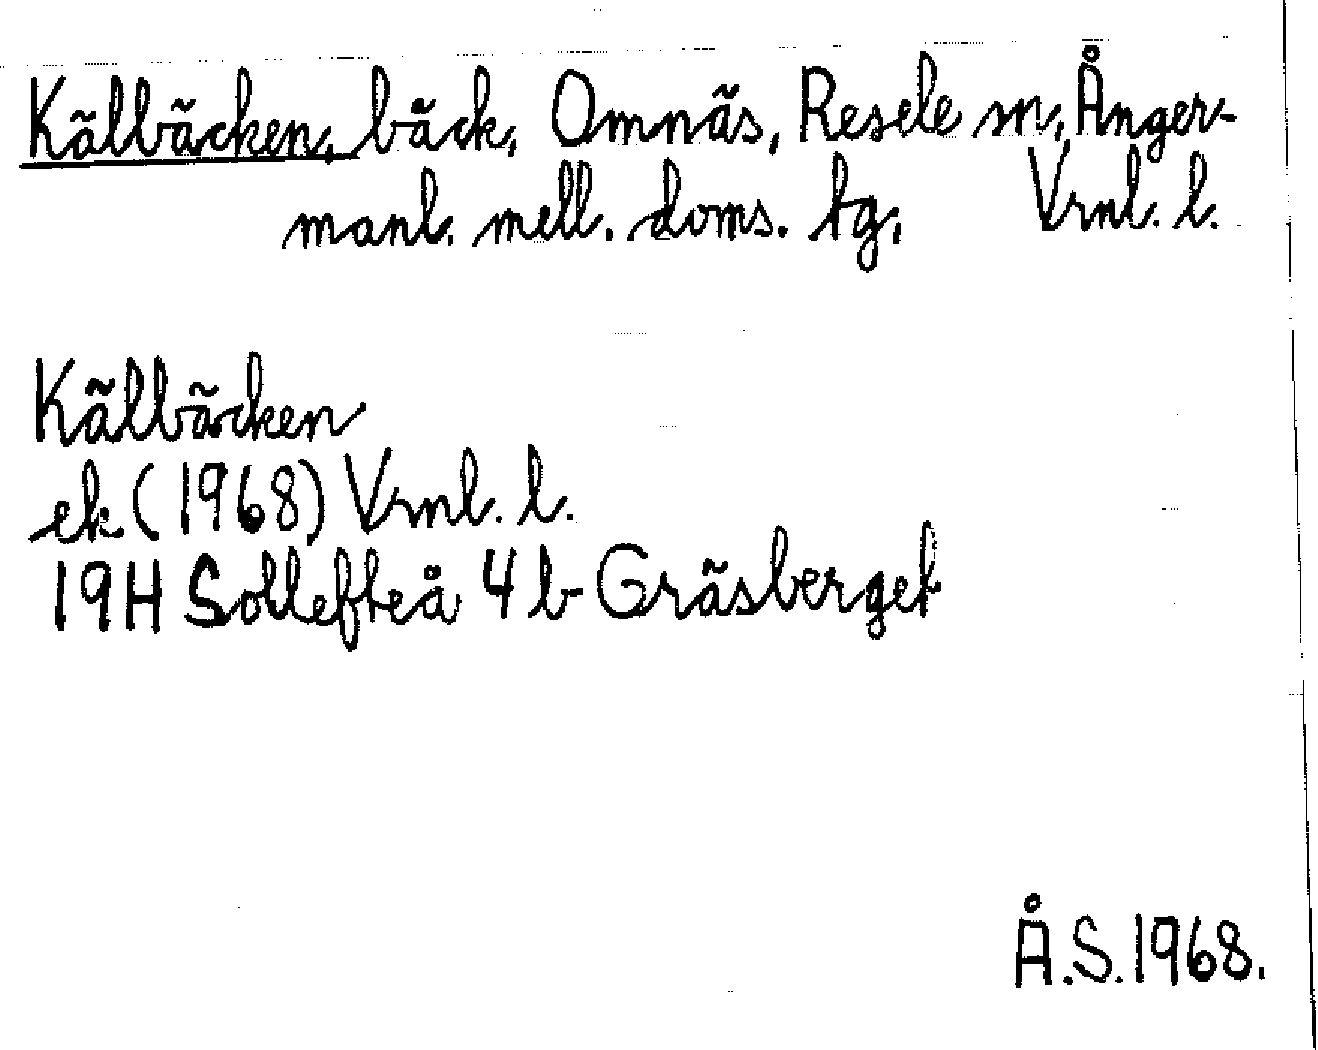 Kälbäcken, bäck, Omnäs, Resele sn, Ånger-
manl. mell. doms. tg, Vrnl. l.
Kälbäcken
ek (1968) Vrnl. l.
19H Sollefteå 4b Gräsberget
Å.S. 1968.